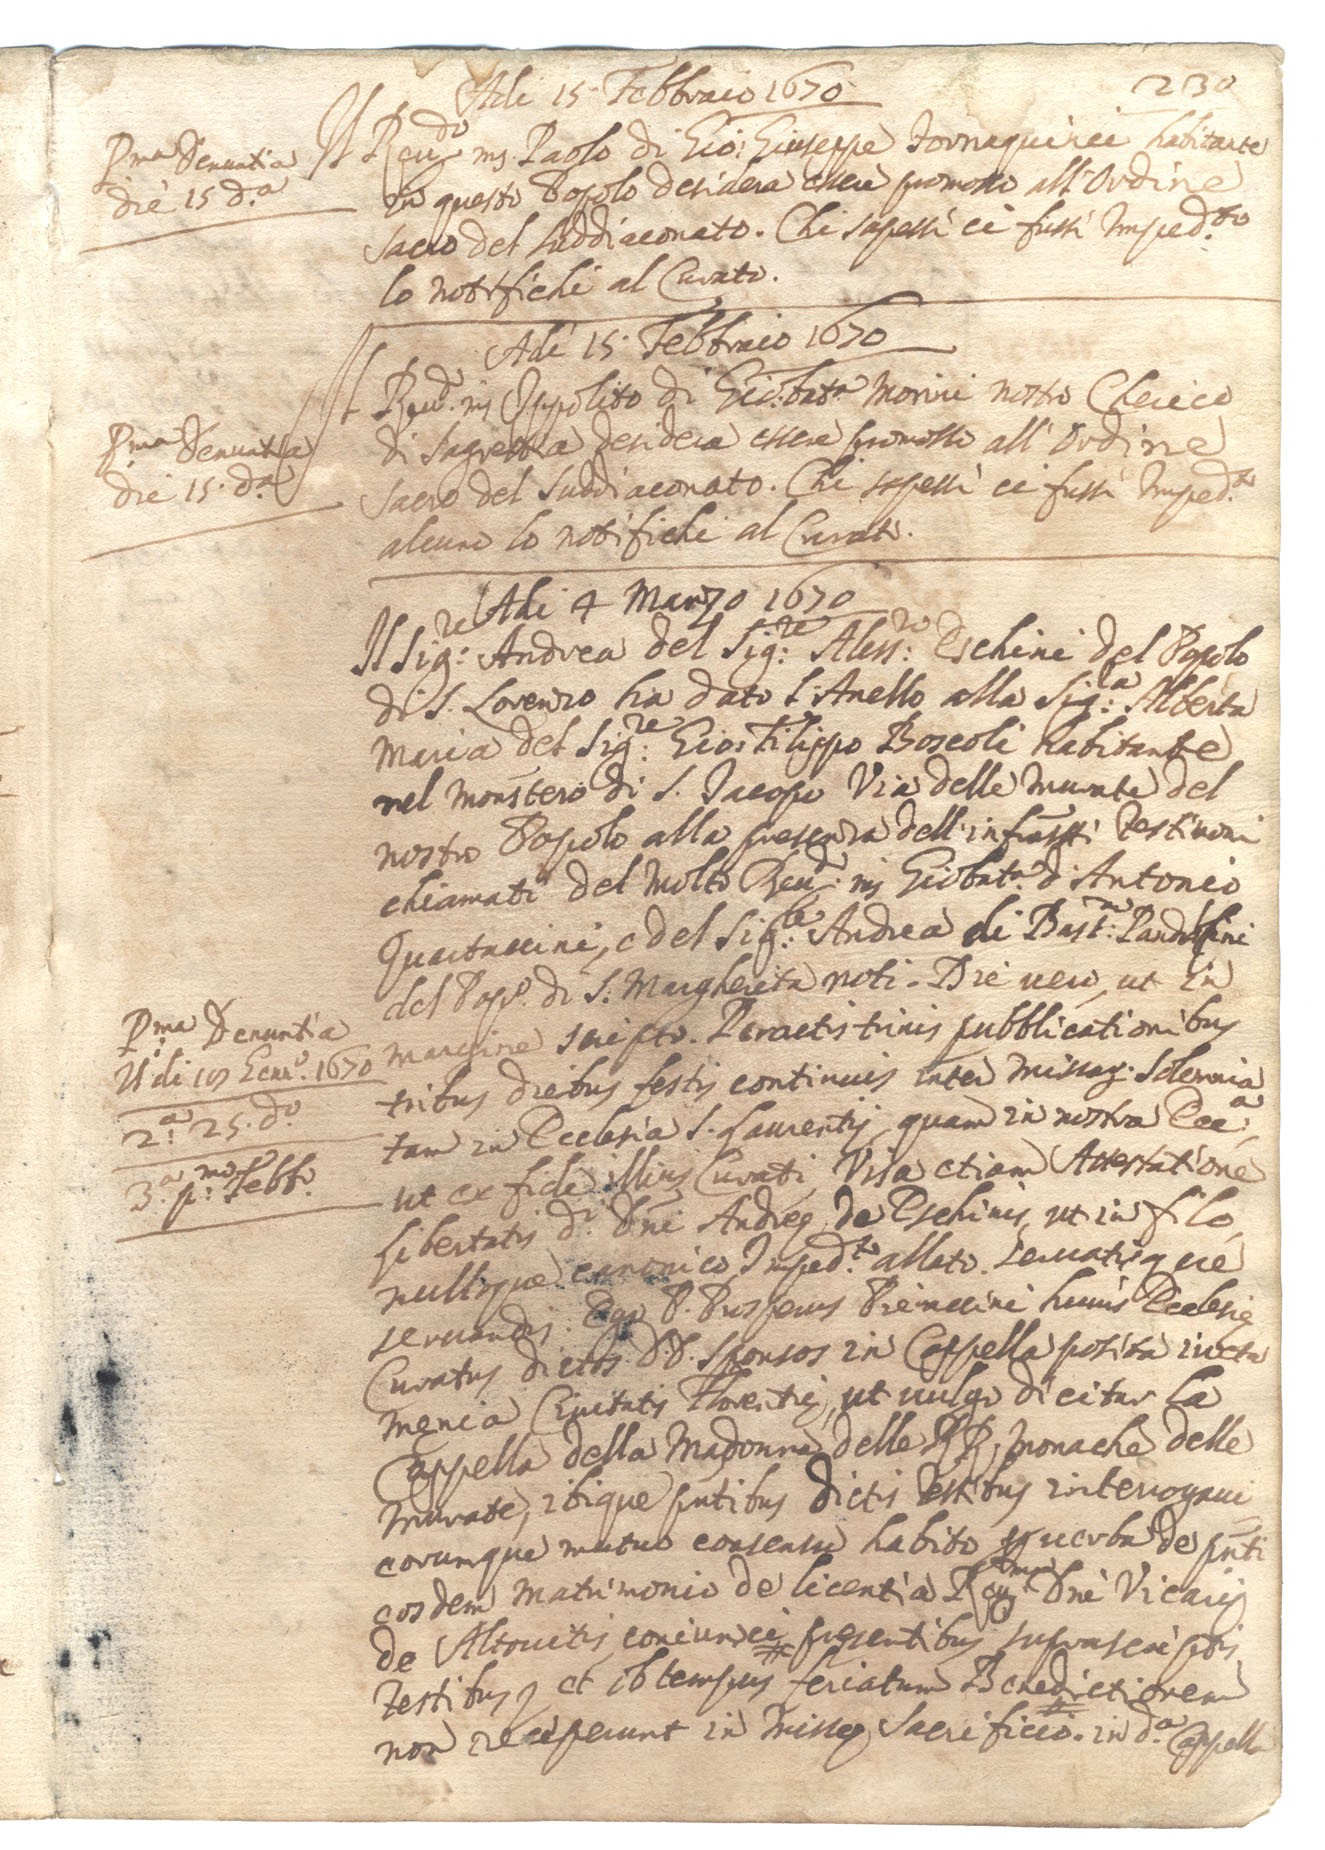 230
Adi 15 Febbraio 1670
Pma Denuntia
die 15 da
Il Reudo ms Paolo di Gio: Giuseppe Tornaquinci habitante
in questo Popolo desidera essere promosso all'Ordine
sacro del suddiaconato. Chi sapessi ci fussi Imped.to
lo notifichi al Curato.
Adi 15 Febbraio 1670
Pma Denuntia
die 15. da
Il Reud. ms Ippolito di Gio:bata Morini nostro Cherico
di Sagrestia desidera essere promosso all'Ordine
sacro del suddiaconato. Chi sapessi ci fussi Imped.to
alcuno lo notifichi al Curato.
Adi 4 Marzo 1670
Il Sig:re Andrea del Sig:re Aless:ro Eschini del Popolo
di S. Lorenzo ha dato l'Anello alla Sig:a Alberta
Maria del Sig:re Gio: Filippo Boscoli habitante
nel monstero di S. Jacopo Via delle Murate del
nostro Popolo alla presenza dell'infrastti Testimoni
chiamati del Molto Reud: ms Giobata d'Antonio
, e del Sig:re Andrea di Bast:no Pandolfini
del Popo. di S. Margherita noti. Die uero, ut in
Pma Denuntia
Adi Genno. 1670
2.a 25. do
3.a p:mo Febb.
margine scripto. Peractis trinis pubblicationibus
tribus diebus festis continuis inter missar. solemnia
tam in Ecclesia S. Laurentij, quam in nostra Ecc:a
ut ex fide illius Curati, Visa etiam Attestatione
libertatis di Dni Andreę de Eschinis, ut in filo,
nulloque canonico Imped.to allato. seruatisque
seruandis. Ego P. Prosperus huius Ecclesię
Curatus dictos D.D. sponsos in Cappella posita iuxta
menia Ciuitatis Florentię, ut uulgo dicitur la
Cappella della Madonna delle RR. monache delle
Murate, ibique pntibus dictis testibus interrogaui
eorumque mutuo consensu habito p uerba de pnti
eosdem Matrimonio de licentia Reummi Dni Vicarij
de Altouitis coniunxi presentibus suprascriptis
Testibus, et ob tempus feriatum Benedictionem
non receperunt in missę Sacrificio. in da Cappella